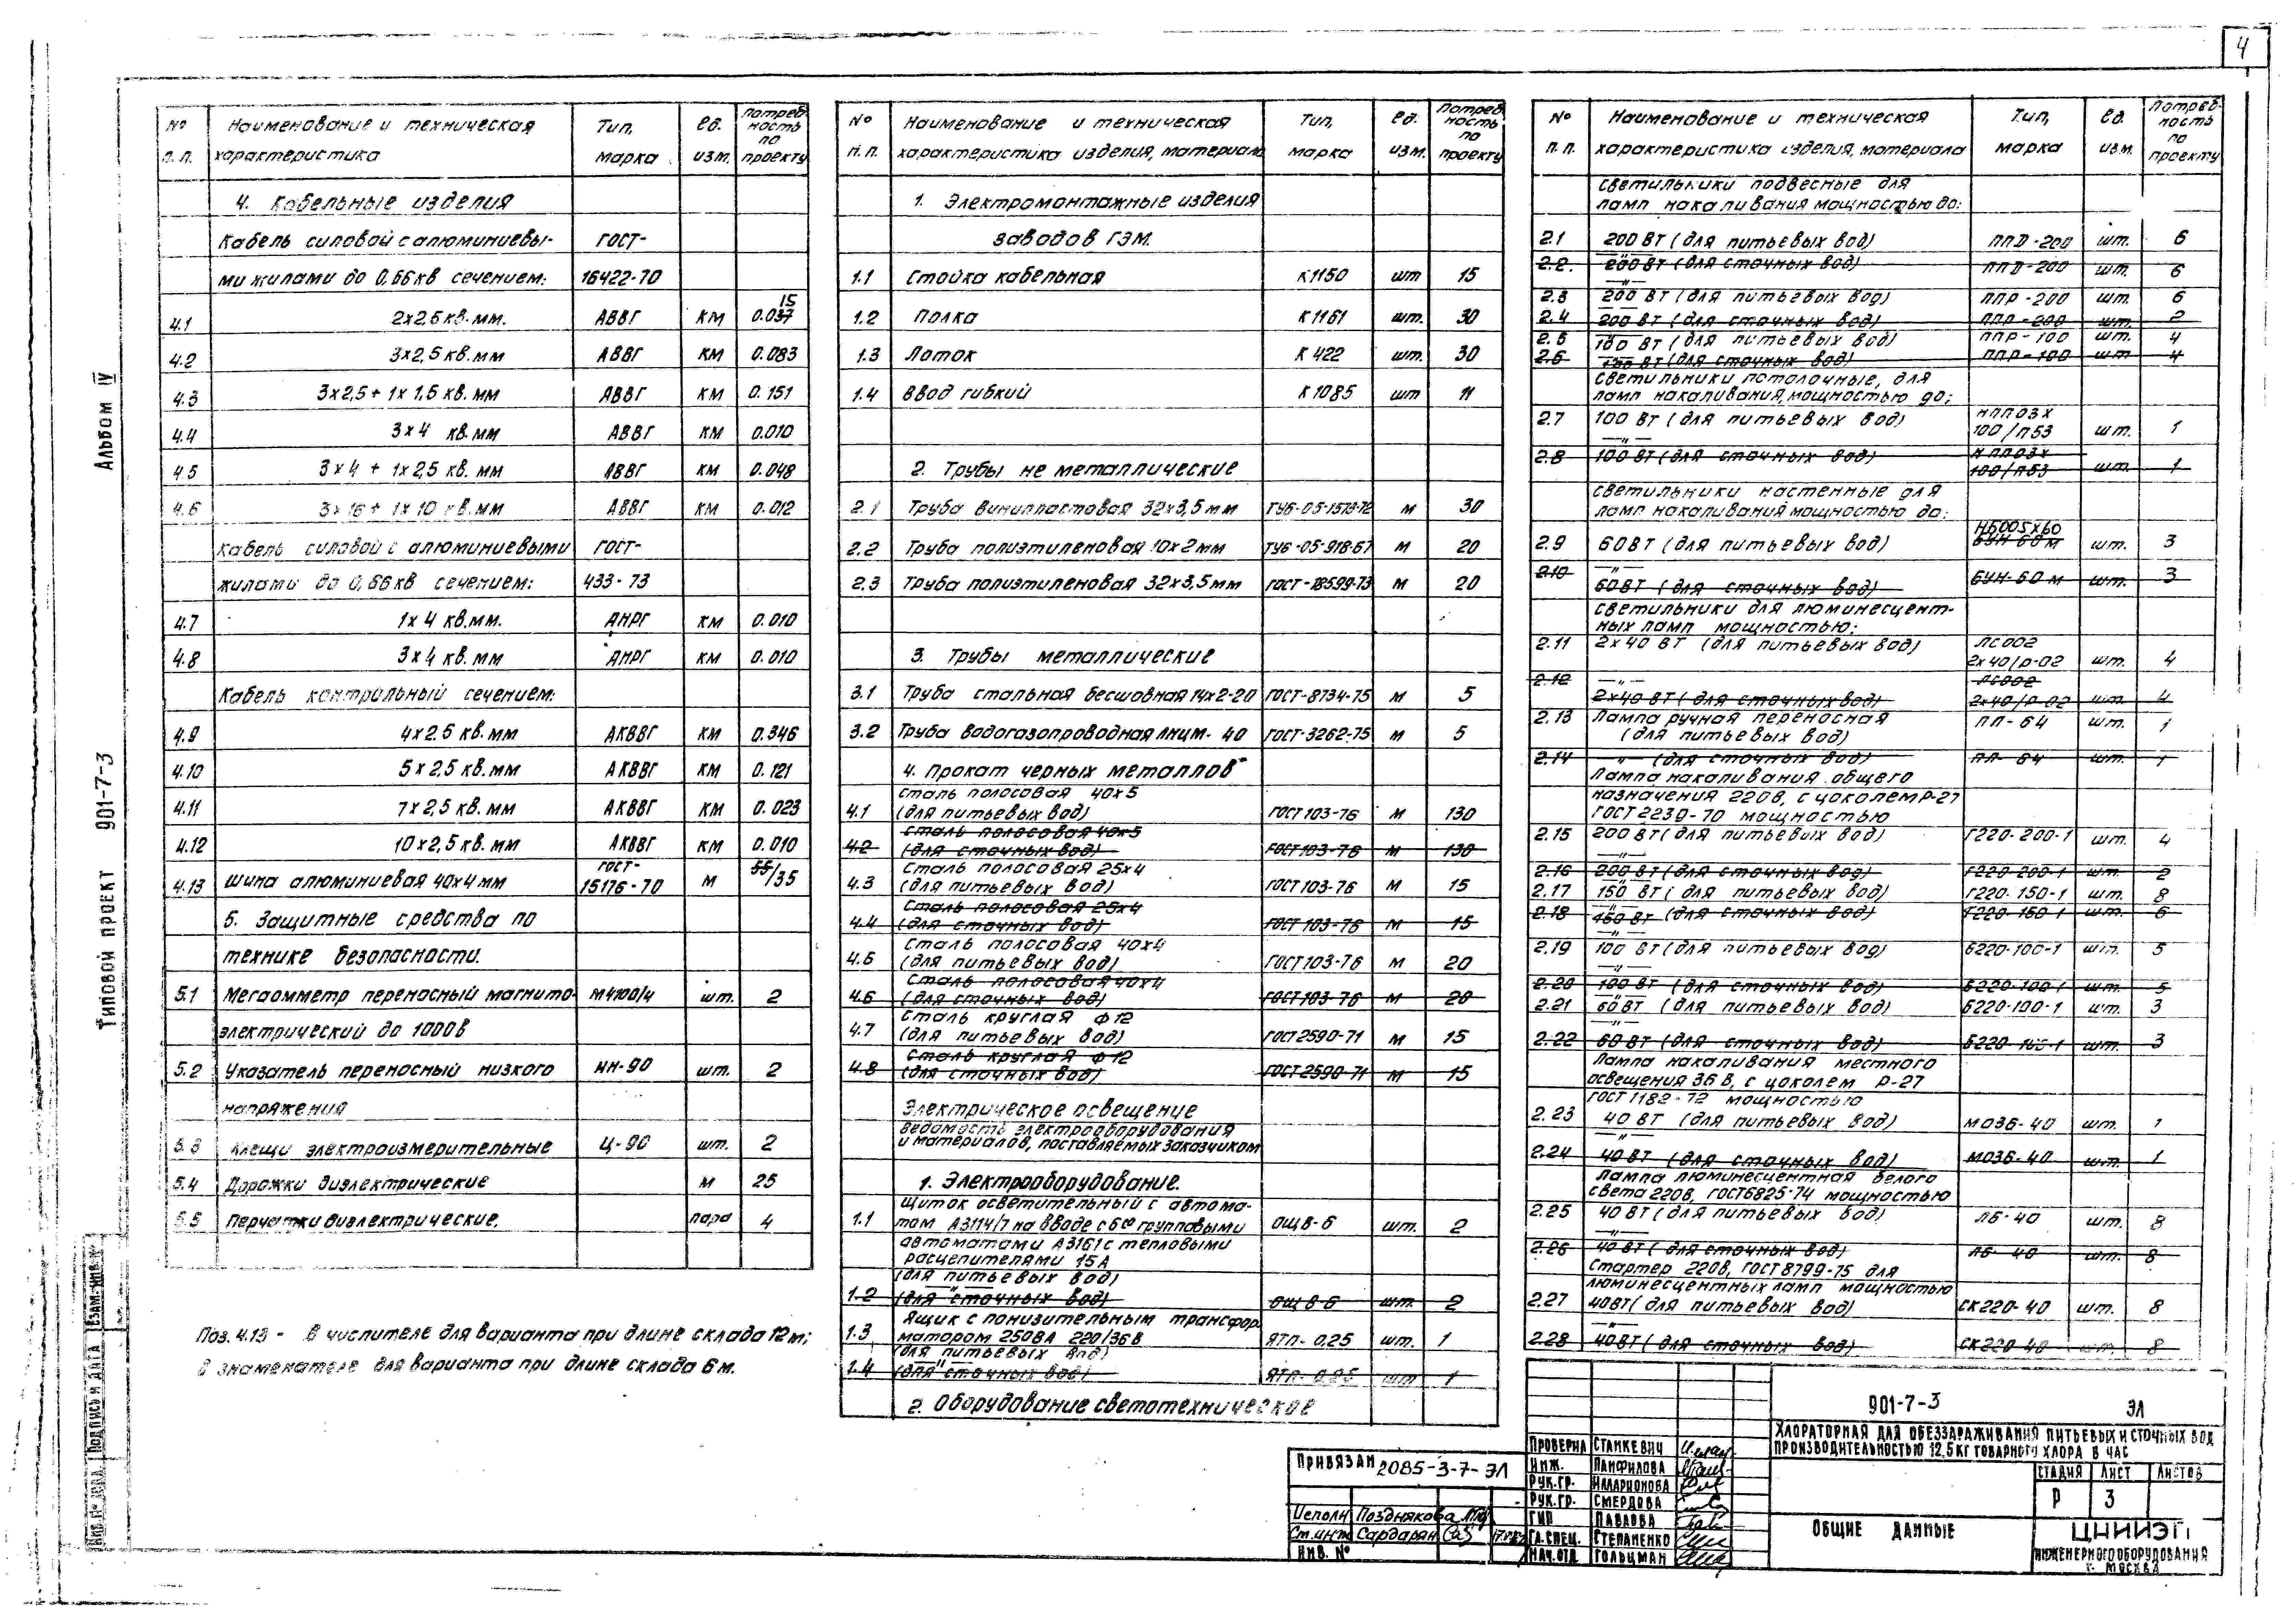 4
Альбом IV
Типовой проект 901-7-3
№ п.п. Наименование и техническая характеристика Тип, марка Ед. изм. Потреб-ность по проекту
4. Кабельные изделия
Кабель силовой с алюминиевы- ГОСТ-
ми жилами до 0,66кв сечением: 16422-70
4.1 2х2,5 кв.мм. АВВГ км 0.037 15
4.2 3х2,5 кв.мм АВВГ км 0.083
4.3 3х2,5 + 1х1,5 кв.мм АВВГ км 0.151
4.4 3х4 кв.мм АВВГ км 0.010
4.5 3х4 + 1х2,5 кв.мм АВВГ км 0.048
4.6 3х16 + 1х10 кв.мм АВВГ км 0.012
Кабель силовой с алюминиевыми ГОСТ-
жилами до 0,66кв сечением: 433-73
4.7 1х4 кв.мм. АНРГ км 0.010
4.8 3х4 кв.мм АНРГ км 0.010
Кабель контрольный сечением:
4.9 4х2,5 кв.мм АКВВГ км 0.346
4.10 5х2,5 кв.мм АКВВГ км 0.121
4.11 7х2,5 кв.мм АКВВГ км 0.023
4.12 10х2,5 кв.мм АКВВГ км 0.010
4.13 Шина алюминиевая 40х4 мм ГОСТ-15176-70 м 55/35
5. Защитные средства по
технике безопасности.
5.1 Мегаомметр переносный магнито- М4100/4 шт. 2
электрический до 1000в
5.2 Указатель переносный низкого ИН-90 шт. 2
напряжения
5.3 Клещи электроизмерительные Ц-90 шт. 2
5.4 Дорожки диэлектрические м 25
5.5 Перчатки диэлектрические. пара 4
Поз. 4.13 - в числителе для варианта при длине склада 12 м;
в знаменателе для варианта при длине склада 6 м.
№ п.п. Наименование и техническая характеристика изделия, материала Тип, марка Ед. изм. Потреб-ность по проекту
1. Электромонтажные изделия
заводов ГЭМ.
1.1 Стойка кабельная К1150 шт 15
1.2 Полка К1161 шт. 30
1.3 Лоток К 422 шт. 30
1.4 Ввод гибкий К1085 шт 11
2. Трубы не металлические
2.1 Труба винипластовая 32х3,5 мм ТУ6-05-1573-72 м 30
2.2 Труба полиэтиленовая 10х2 мм ТУ6-05-918-67 м 20
2.3 Труба полиэтиленовая 32х3,5 мм ГОСТ-18599-73 м 20
3. Трубы металлические
3.1 Труба стальная бесшовная 14х2-20 ГОСТ-8734-75 м 5
3.2 Труба водогазопроводная 40 ГОСТ-3262-75 м 5
4. Прокат черных металлов
сталь полосовая 40х5
4.1 (для питьевых вод) ГОСТ 103-76 м 130
сталь полосовая 40х5
4.2 (для сточных вод) ГОСТ 103-76 м 130
Сталь полосовая 25х4
4.3 (для питьевых вод) ГОСТ 103-76 м 15
Сталь полосовая 25х4
4.4 (для сточных вод) ГОСТ 103-76 м 15
Сталь полосовая 40х4
4.5 (для питьевых вод) ГОСТ 103-76 м 20
Сталь полосовая 40х4
4.6 (для сточных вод) ГОСТ 103-76 м 20
Сталь круглая ф 12
4.7 (для питьевых вод) ГОСТ 2590-71 м 15
Сталь круглая ф 12
4.8 (для сточных вод) ГОСТ 2590-71 м 15
Электрическое освещение
Ведомость электрооборудования
и материалов, поставляемых заказчиком
1. Электрооборудование.
Щиток осветительный с автома-
1.1 том А3114/7 на вводе с 6ю групповыми ОЩВ-6 шт. 2
автоматами А3161 с тепловыми
расцепителями 15 А
(для питьевых вод)
1.2 (для сточных вод) ОЩВ-6 шт. 2
Ящик с понизительным трансфор-
1.3 матором 250ВА 220/36В ЯТП-0.25 шт. 1
(для питьевых вод)
1.4 (для сточных вод) ЯТП-0.25 шт 1
2. Оборудование светотехническое
№ п.п. Наименование и техническая характеристика изделия, материала Тип, марка Ед. изм. Потреб-ность по проекту
светильники подвесные для
ламп накаливания мощностью до:
2.1 200 Вт (для питьевых вод) ППД-200 шт. 6
2.2. 200 Вт (для сточных вод) ППД-200 шт. 6
2.3 200 Вт (для питьевых вод) ППР-200 шт. 6
2.4 200 Вт (для сточных вод) ППР-200 шт. 2
2.5 100 Вт (для питьевых вод) ППР-100 шт. 4
2.6 100 Вт (для сточных вод) ППР-100 шт 4
Светильники потолочные, для
ламп накаливания, мощностью до:
2.7 100 Вт (для питьевых вод) НПП03Х 100/П53 шт. 1
2.8 100 Вт (для сточных вод) НПП03Х 100/П53 шт. 1
светильники настенные для
ламп накаливания мощностью до:
2.9 60 Вт (для питьевых вод) НБ005х60 БУН-60М шт. 3
2.10 60 Вт (для сточных вод) БУН-60М шт. 3
светильники для люминесцент-
ных ламп мощностью:
2.11 2х40 Вт (для питьевых вод) ЛС002 2х40/Р-02 шт. 4
2.12 2х40 Вт (для сточных вод) ЛС002 2х40/Р-02 шт. 4
2.13 Лампа ручная переносная ПЛ-64 шт. 1
(для питьевых вод)
2.14 -"- (для сточных вод) ПЛ-64 шт. 1
Лампа накаливания общего
назначения 220в, с цоколем Р-27
ГОСТ 2239-70 мощностью
2.15 200 Вт (для питьевых вод) Г220-200-1 шт. 4
2.16 200 Вт (для сточных вод) Г220-200-1 шт. 2
2.17 150 Вт (для питьевых вод) Г220-150-1 шт. 8
2.18 150 Вт (для сточных вод) Г220-150-1 шт. 6
2.19 100 Вт (для питьевых вод) Б220-100-1 шт. 5
2.20 100 Вт (для сточных вод) Б220-100-1 шт. 5
2.21 60 Вт (для питьевых вод) Б220-100-1 шт. 3
2.22 60 Вт (для сточных вод) Б220-100-1 шт. 3
Лампа накаливания местного
освещения 36 В, с цоколем Р-27
ГОСТ 1182-72 мощностью
2.23 40 Вт (для питьевых вод) МО36-40 шт. 1
2.24 40 Вт (для сточных вод) МО36-40 шт. 1
Лампа люминесцентная белого
света 220в, ГОСТ 6825-74 мощностью
2.25 40 Вт (для питьевых вод) ЛБ-40 шт. 8
2.26 40 Вт (для сточных вод) ЛБ-40 шт. 8
Стартер 220в, ГОСТ 8799-75 для
люминесцентных ламп мощностью
2.27 40Вт (для питьевых вод) СК220-40 шт. 8
2.28 40Вт (для сточных вод) СК220-40 шт. 8
Привязан 2085-3-7-ЭЛ
Исполн Позднякова
Ст.инж Сардарян
Инв. №
Проверил Станкевич
Инж. Панфилова
Рук.гр. Илларионова
Рук.гр. Смердова
ГИП Павлова
Гл.спец. Степаненко
Нач.отд Гольцман
901-7-3 ЭЛ
Хлораторная для обеззараживания питьевых и сточных вод
производительностью 12,5кг товарного хлора в час
Стадия Лист Листов
Р 3
Общие данные
ЦНИИЭП
инженерного оборудования
г. Москва
Взам. инв. №
Подпись и дата
Инв. № подл.